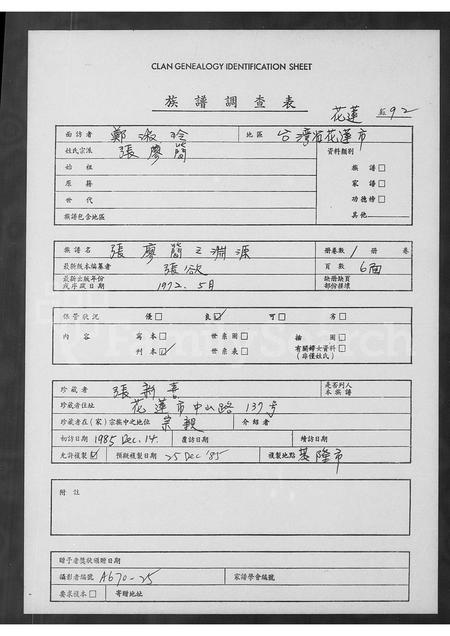 CLAN GENEALOGY IDENTIFICATION SHEET
族譜調查表
花蓮 92
面訪者 鄭淑玲 地區 台灣省花蓮市
姓氏宗派 張廖簡 資料類別
始祖 族譜□
原籍 家譜□
世代 功德榜□
族譜包含地區 其他
族譜名 張廖簡之淵源 冊卷數 1 冊 卷
最新版本編纂者 張欽 頁數 6面
最新出版年份或序跋日期 1972. 5月 缺冊缺頁部份損壞
保管狀況 優□ 良☑ 可□ 劣□
內容 寫本□ 世系圖□ 插圖□
刊本☑ 世系表□ 有關婦女資料□(非僅姓氏)
珍藏者 張新喜 是否列入本族譜
珍藏者住址 花蓮市中山路 137號
珍藏者在(家)宗族中之地位 宗親 介紹者
初訪日期 1985 Dec. 14. 覆訪日期 續訪日期
允許複製☑ 預擬複製日期 25 Dec '85 複製地點 基隆市
附註
贈予者獎狀頒贈日期
攝影者編號 A670-25 家譜學會編號
要求複本□ 寄贈地址
FamilySearch